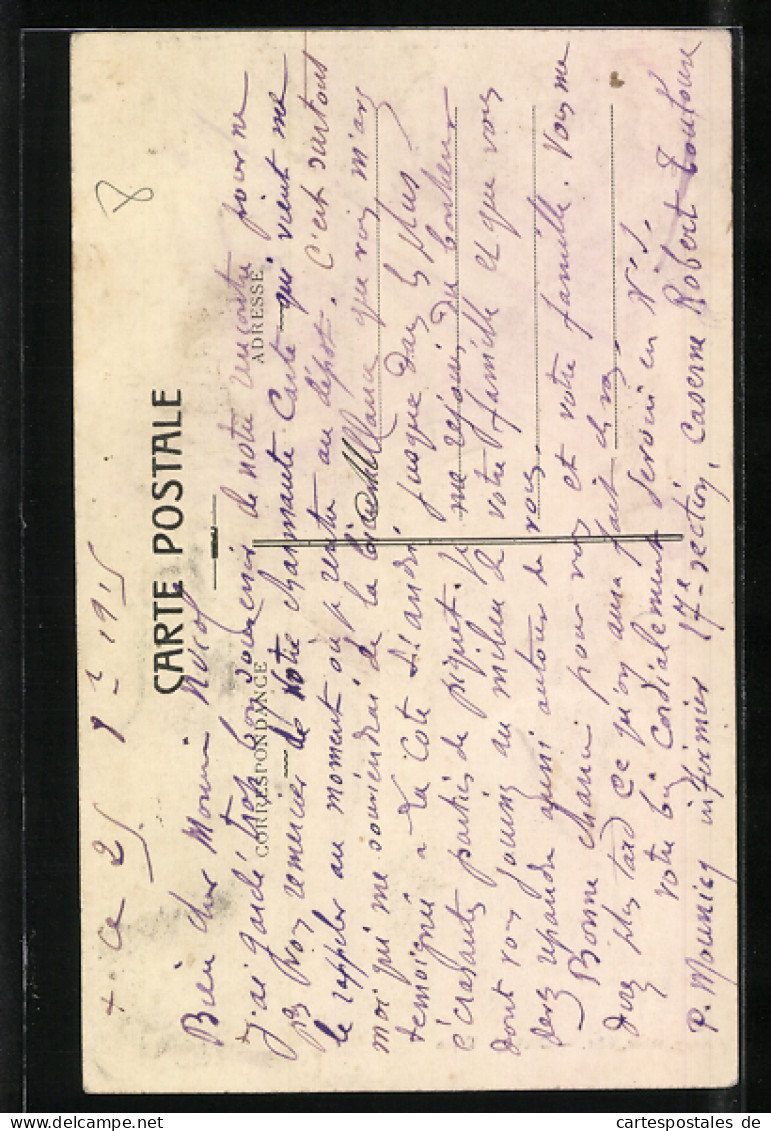 + Ce 25. 9bre 1915
CARTE POSTALE
CORRESPONDANCE
ADRESSE
8
Bien cher Monsieur
J'ai gardé trop bon souvenir de notre rencontre pour ne
pas vous remercier de votre charmante Carte qui vient me
le rappeler au moment où je rentre au dépôt. C'est surtout
moi qui me souviendrai de la bienveillance que vous m'avez
temoignée à La Côte St André, jusque dans les plus
écrasantes parties de piquet. Je me rejouis du bonheur
dont vous jouissez au milieu de votre famille et que vous
devez repandre aussi autour de vous.
Bonne chance pour vous et votre famille. Vous me
direz plus tard ce qu'on aura fait de vous.
Votre bien cordialement
P. Mounicq infirmier 17e section, Caserne Robert Toulouse
cartespostales de